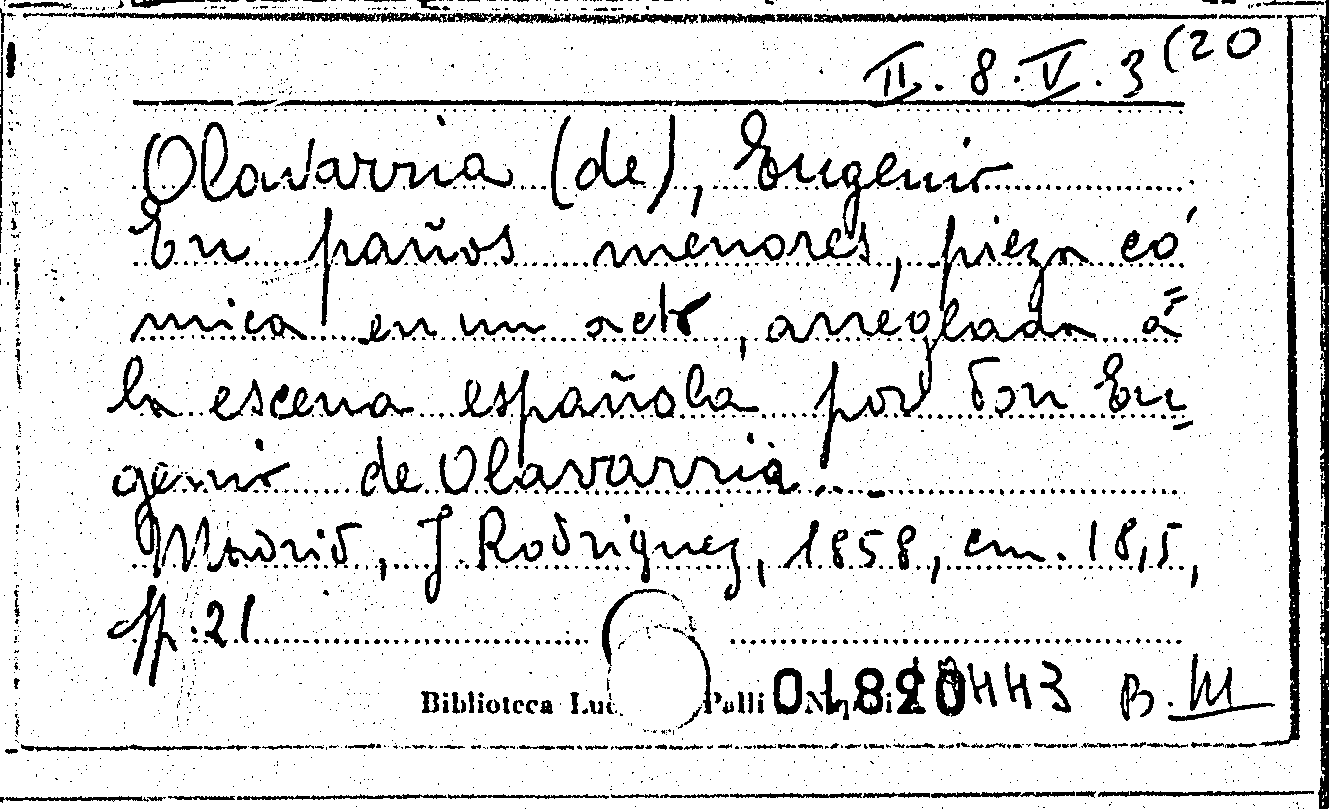 II. 8. V. 3 (20
Olavarria (de), Eugenio
En paños menores, pieza có
mica en un acto, arreglada á=
la escena española por don Eu=
genio de Olavarria...
Madrid, J. Rodriguez, 1858, cm. 18,5,
pp. 21
Biblioteca Palli 01820 443 B. M